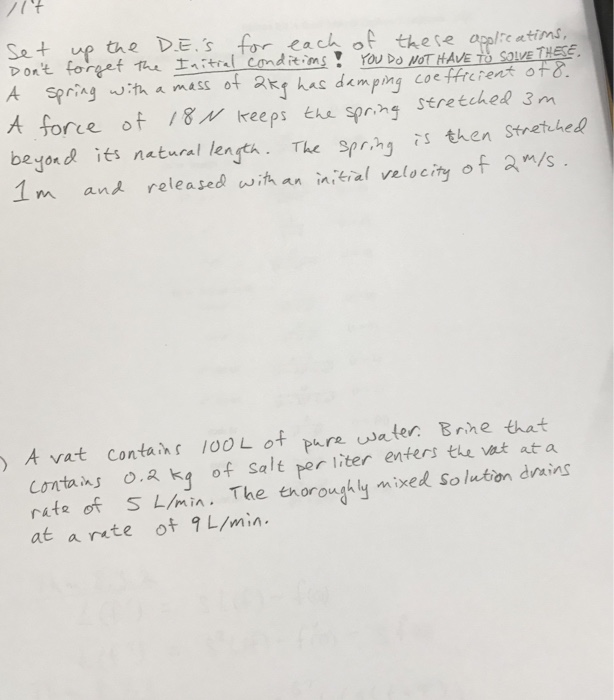 Set up the D.E.'s for each of these applications.
Don't forget the Initial Conditions! YOU DO NOT HAVE TO SOLVE THESE.
A spring with a mass of 2kg has damping coefficient of 8.
A force of 18N keeps the spring stretched 3m
beyond its natural length. The spring is then stretched
1m and released with an initial velocity of 2m/s.
) A vat contains 100L of pure water. Brine that
contains 0.2 kg of salt per liter enters the vat at a
rate of 5 L/min. The thoroughly mixed solution drains
at a rate of 9L/min.